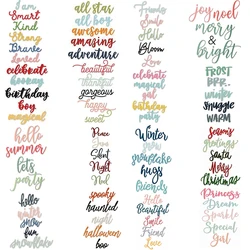 I am
Smart
Kind
Strong
Brave
Loved
celebrate
boomie
birthday
boy
magical
all star
all boy
awesome
amazing
adventure
beautiful
thinking
gorgeous
happy
sweet
Friends
Smile
Hello
Bloom
Love
celebrate
magical
gal
birthday
party
joy noel
merry
&
bright
FROST
BRR..
winter
SNUGGLE
WARM
hello
summer
let's
party
hello
winter
snow
snowflake
Peace
Joy
Silent
Night
Noel
spooky
haunted
night
halloween
boo
Winter
snow
snowflake
hugs
friends
Hello
Beautiful
Smile
Friend
Love
Season's
Greetings
Santa
Merry
Christmas
Princess
Dream
Sparkle
Special
Girl